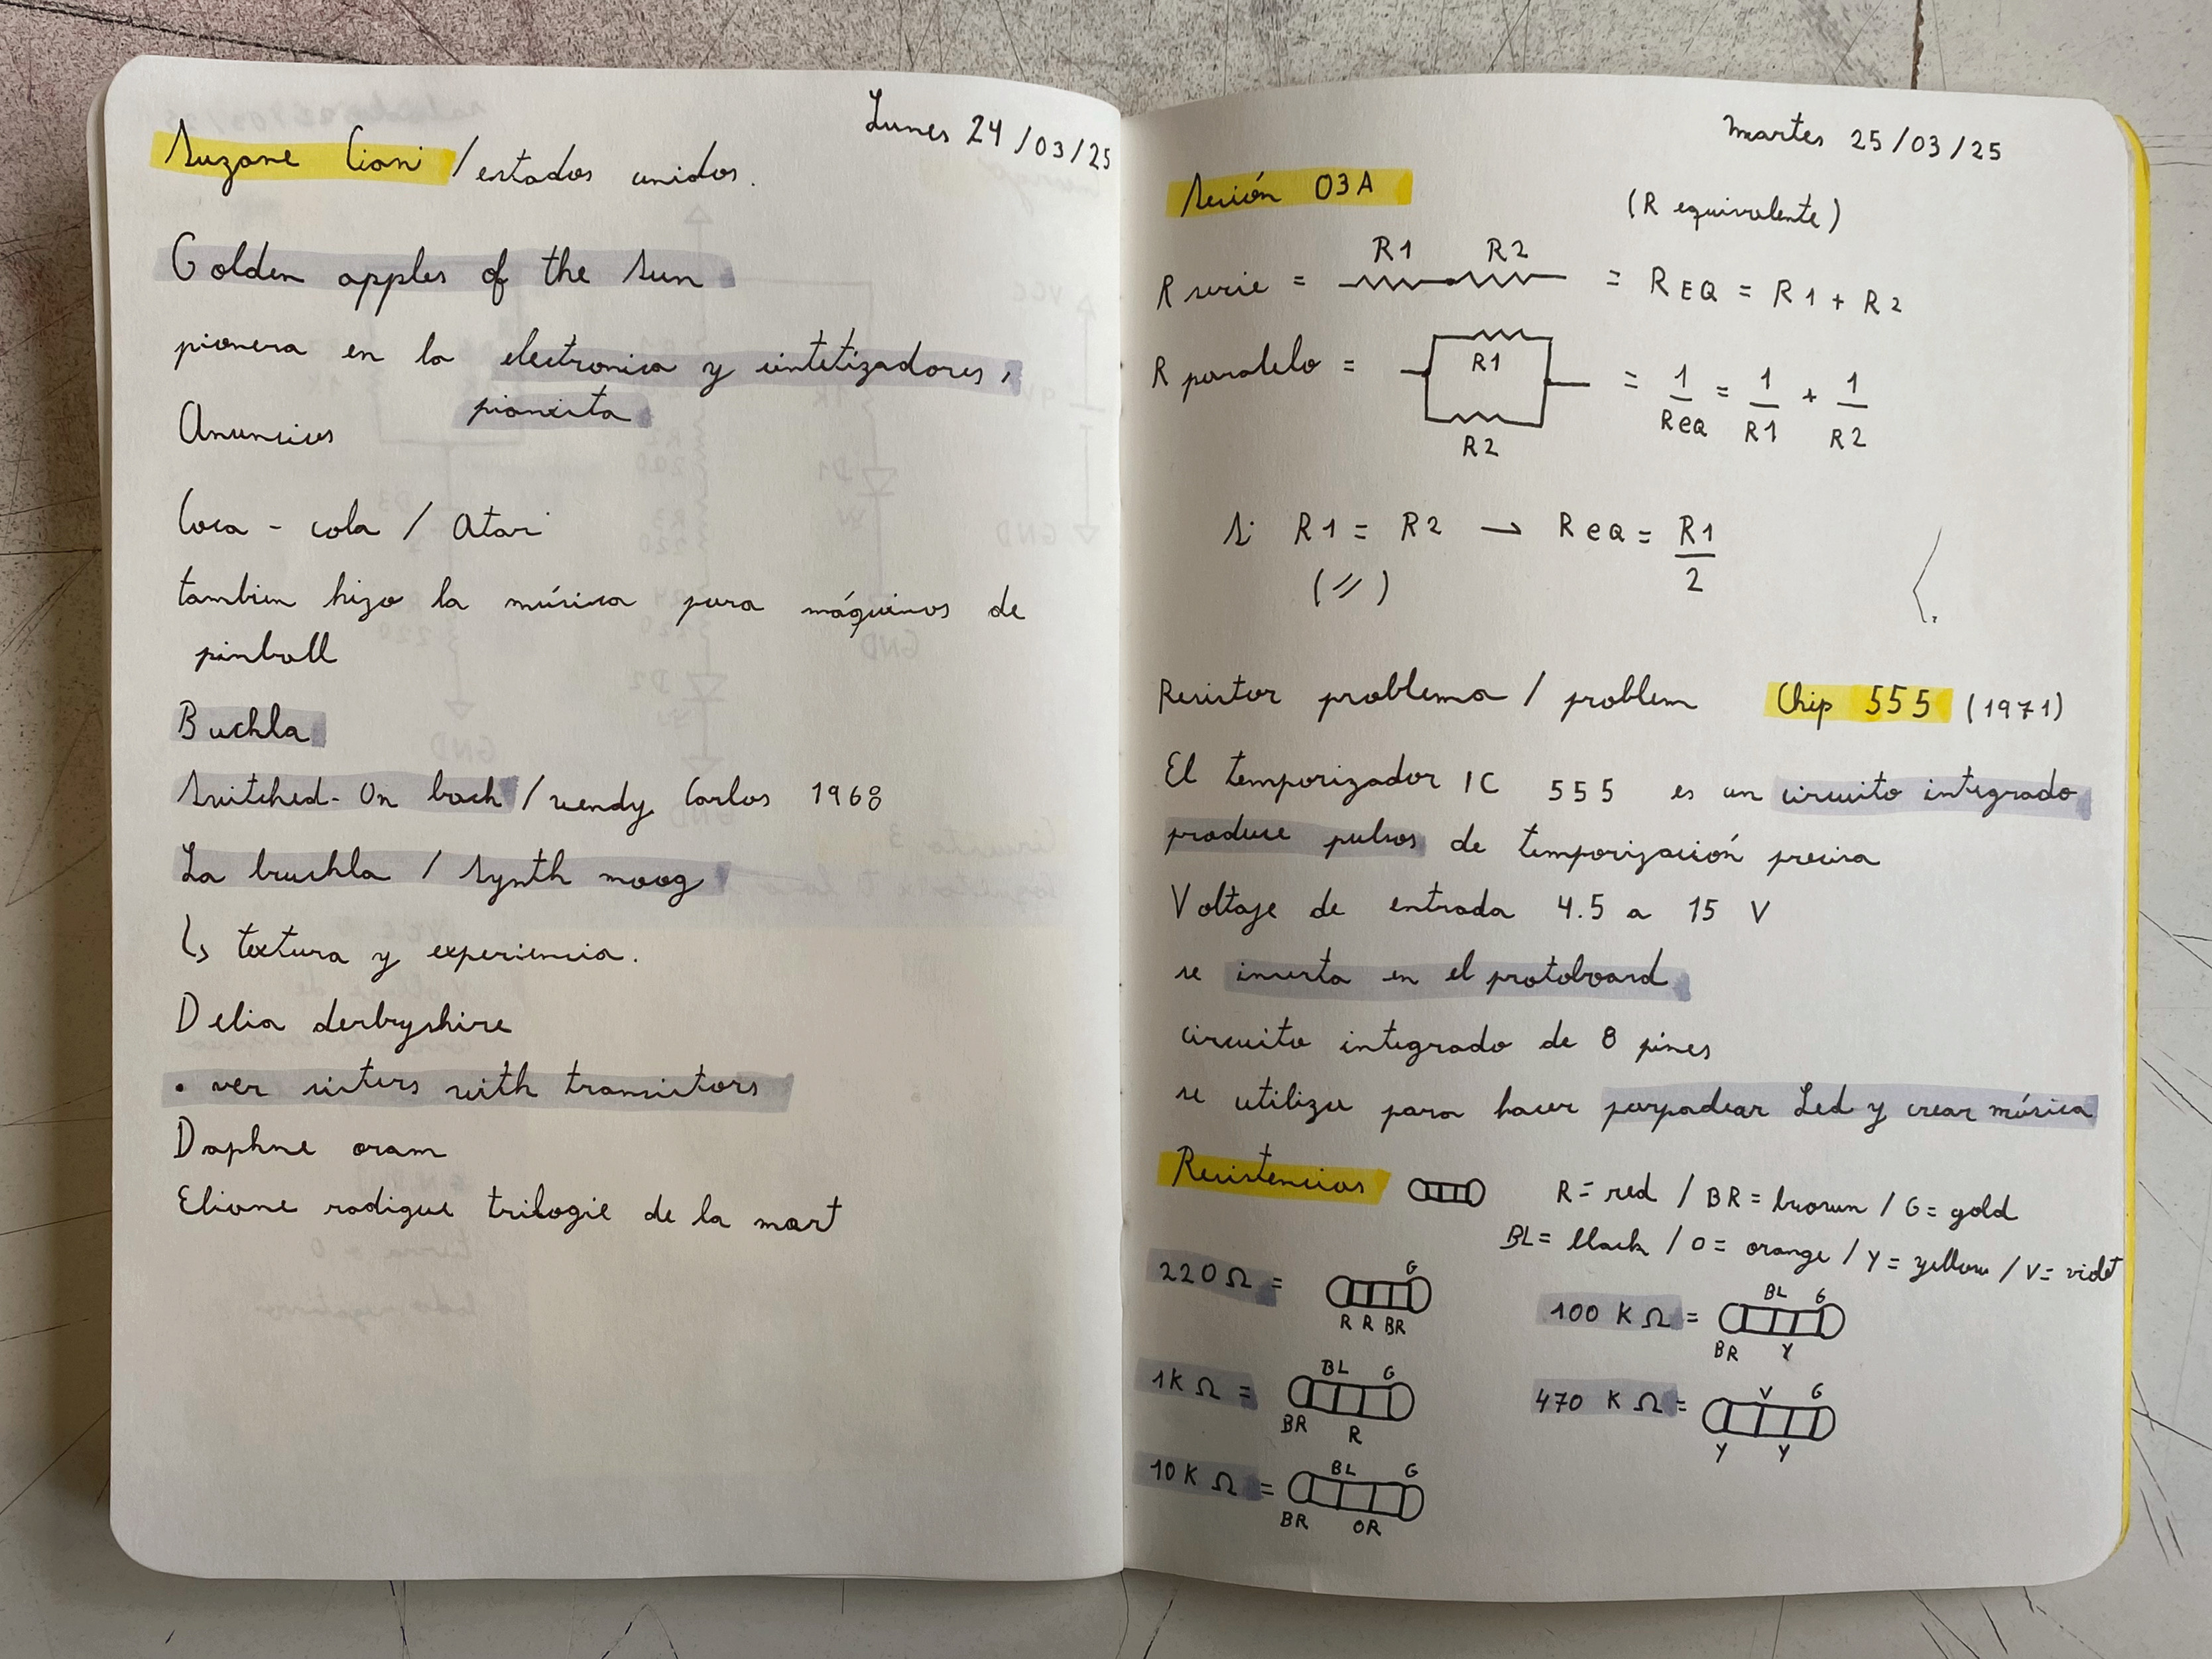 Lunes 24/03/25
Suzane Ciani / estados unidos.
Golden apples of the sun
pionera en la electronica y sintetizadores,
pianista
Anuncios
Coca - cola / Atari
tambien hizo la música para máquinas de
pinball
Buchla
Switched - On bach / wendy Carlos 1968
La bruchla / Synth moog
↳ textura y experiencia.
Delia derbyshire
• ver sisters with transistors
Daphne oram
Eliane radigue trilogie de la mort
Martes 25/03/25
Sesión 03A
(R equivalente)
R1 R2
R serie = = REQ = R1 + R2
R paralelo = R1 = 1/ReQ = 1/R1 + 1/R2
R2
Si R1 = R2 → ReQ = R1/2
(//)
Resistor problema / problem Chip 555 (1971)
El temporizador IC 555 es un circuito integrado
produce pulsos de temporización precisa
Voltaje de entrada 4.5 a 15 V
se inserta en el protoboard
circuito integrado de 8 pines
se utiliza para hacer parpadear Led y crear música
Resistencias R = red / BR = brown / G = gold
BL = black / O = orange / Y = yellow / V = violet
220 Ω = G
R R BR
100 K Ω = BL G
BR Y
1K Ω = BL G
BR R
470 K Ω = V G
Y Y
10K Ω = BL G
BR OR